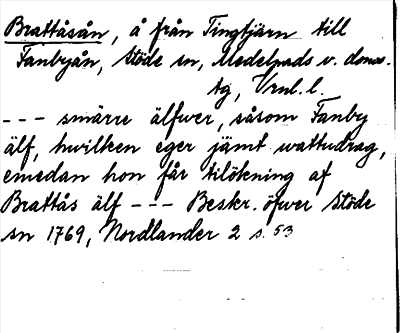 Brattåsån, å från Tingtjärn till
Fanbyån, Stöde sn, Medelpads v. doms.
tg, Vrnl. l.
--- smärre älfwer, såsom Fanby
älf, hwilken eger jämt wattudrag,
emedan hon får tilökning af
Brattås älf --- Beskr. öfwer Stöde
sn 1769, Nordlander 2 s. 53